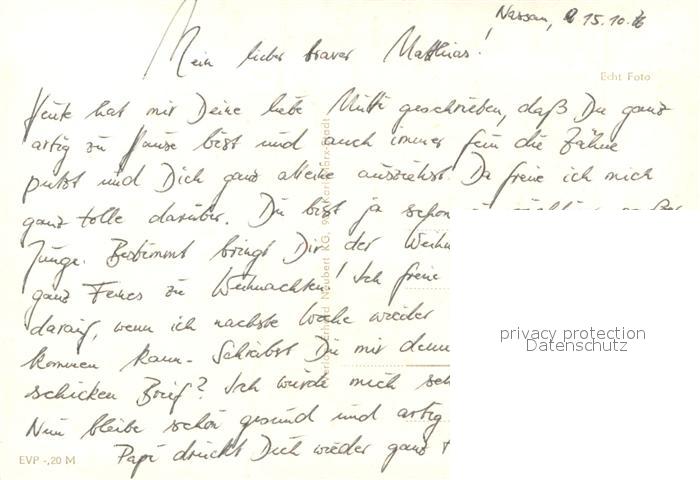 Nassau, 15.10.76
Mein lieber braver Matthias!
Echt Foto
Heute hat mir Deine liebe Mutti geschrieben, daß Du ganz
artig zu Hause bist und auch immer fein die Zähne
putzt und Dich ganz alleine ausziehst. Da freue ich mich
ganz tolle darüber. Du bist ja schon
Junge. Bestimmt bringt Dir der
ganz Feines zu Weihnachten! Ich freue
darauf, wenn ich nächste Woche wieder
kommen kann. Schreibst Du mir
schicken Brief? Ich würde mich
Nun bleibe schön gesund und artig
Papi drückt Dich wieder ganz
EVP -,20 M
privacy protection
Datenschutz